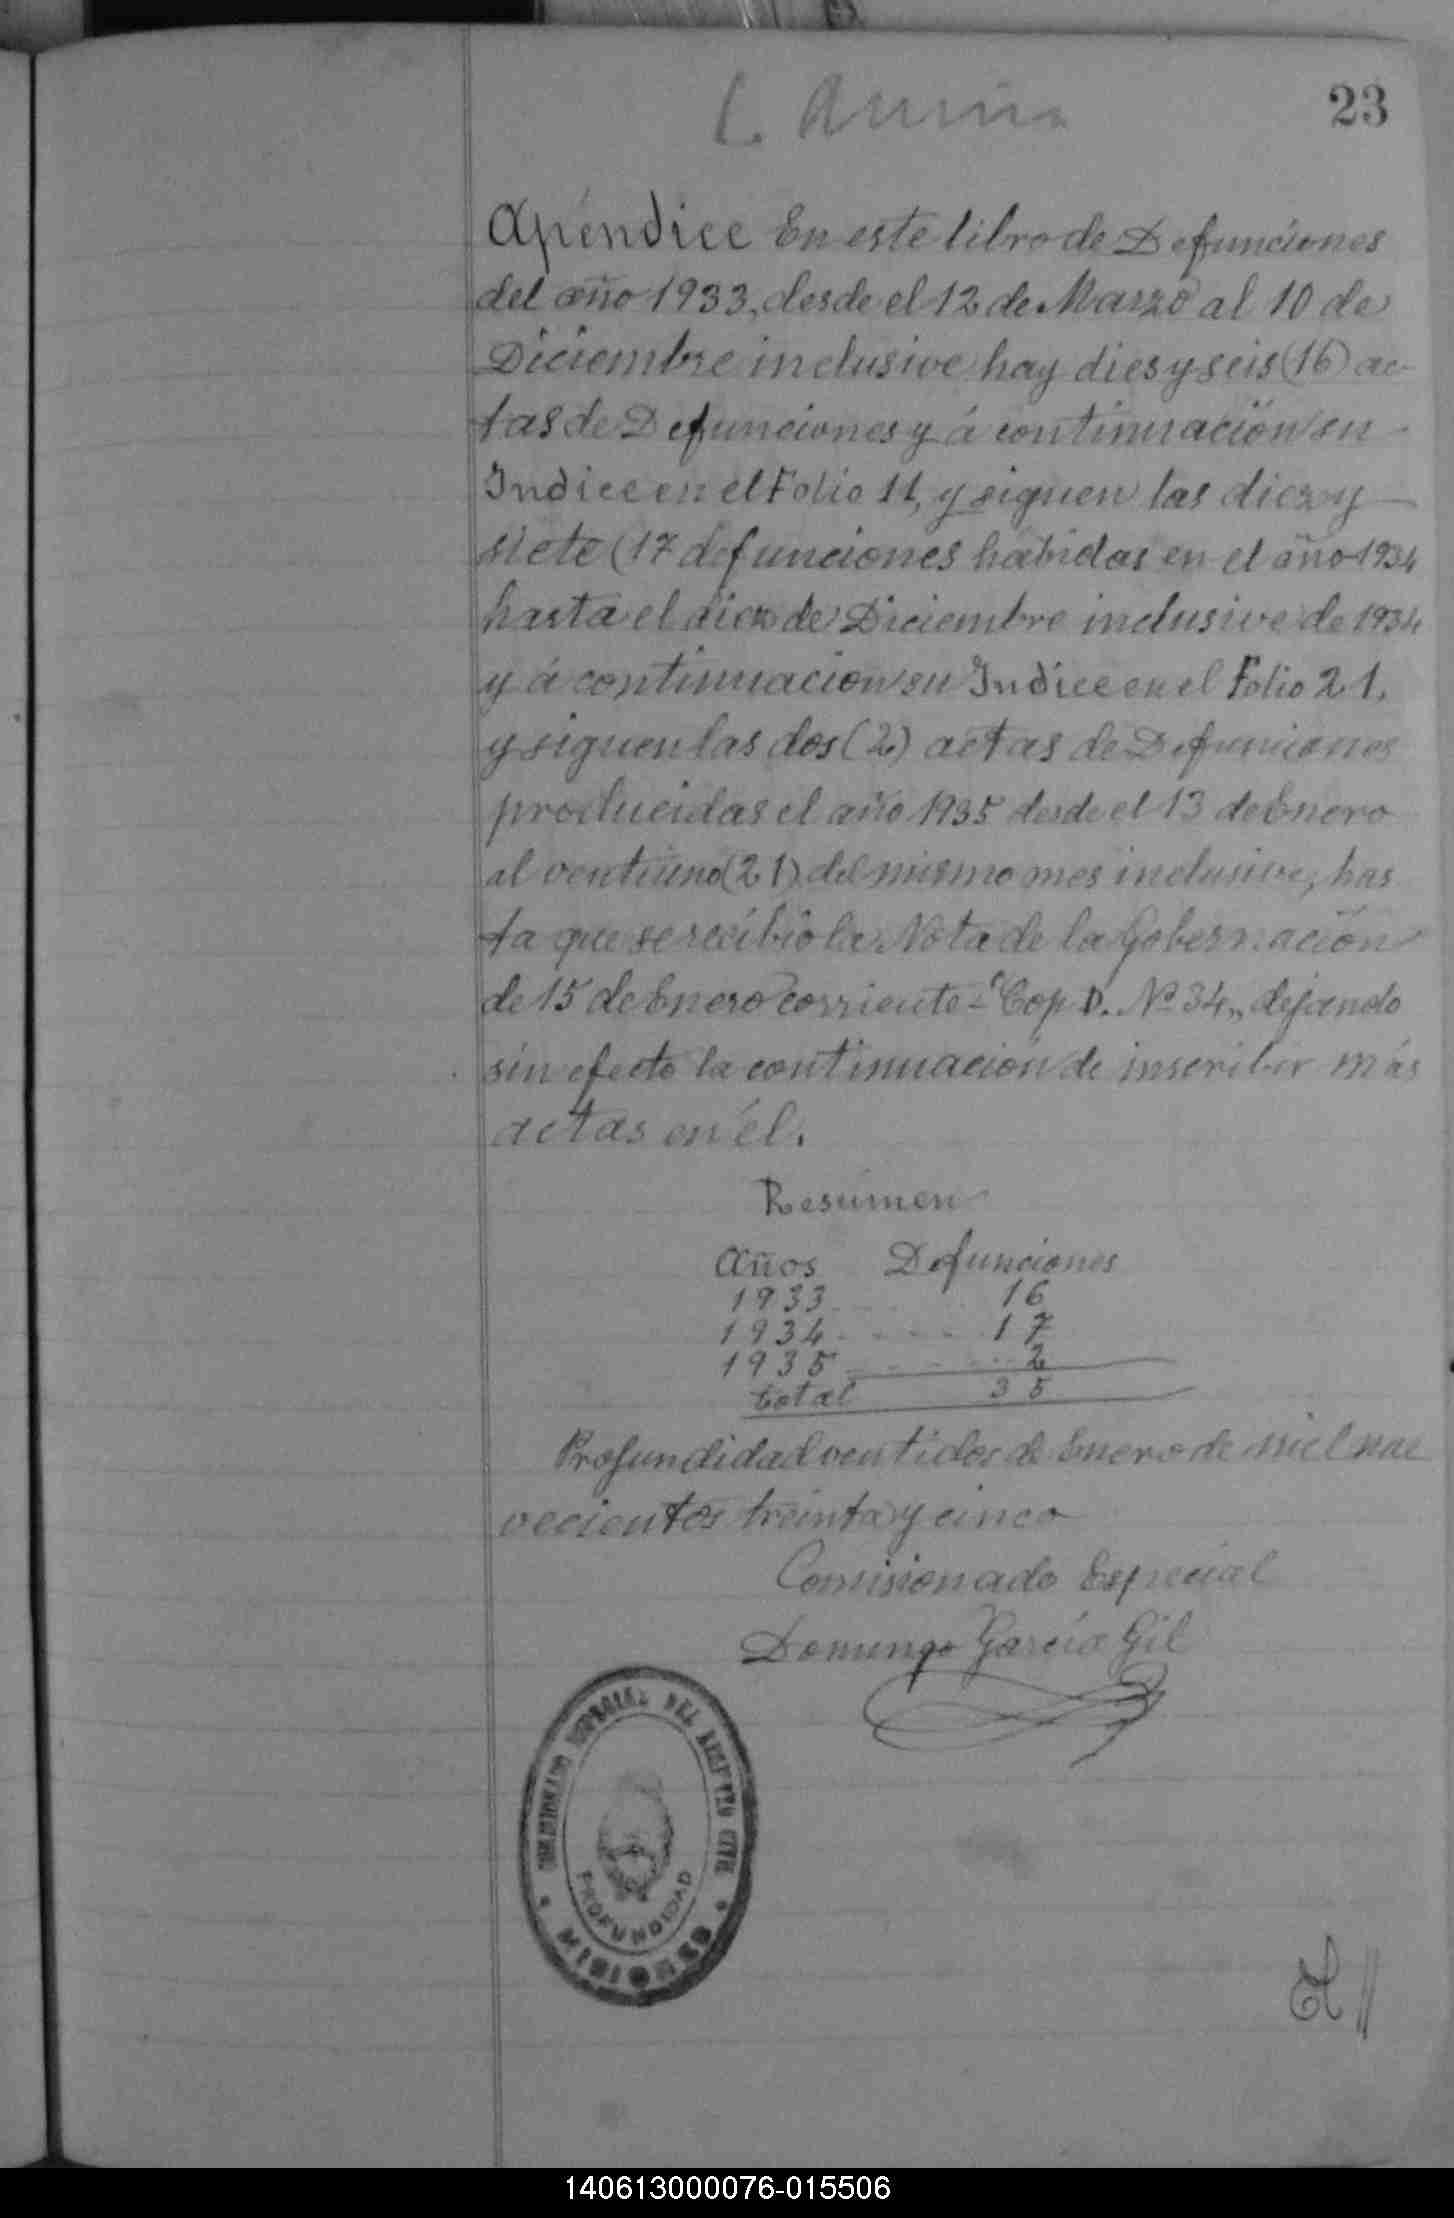 23
Apéndice En este libro de Defunciones
del año 1933, desde el 12 de Marzo al 10 de
Diciembre inclusive hay dies y seis (16) ac-
tas de Defunciones y á continuación su
Indice en el Folio 11, y siguen las diez y
siete (17 defunciones habidas en el año 1934
hasta el diez de Diciembre inclusive de 1934
y á continuacion su Indice en el Folio 21.
y siguen las dos (2) actas de Defunciones
producidas el año 1935 desde el 13 de Enero
al ventiuno (21) del mismo mes inclusive, has
ta que se recibió la Nota de la Gobernación
de 15 de Enero corriente = Cop D. Nº 34,, dejando
sin efecto la continuación de inscribir más
actas en él.
Resúmen
Años Defunciones
1933 16
1934 17
1935 2
total 35
Profundidad ventidos de Enero de mil nue
vecientos treinta y cinco
Comisionado Especial
Domingo García Gil
COMISIONADO ESPECIAL DEL REGISTRO CIVIL
PROFUNDIDAD
MISIONES
140613000076-015506